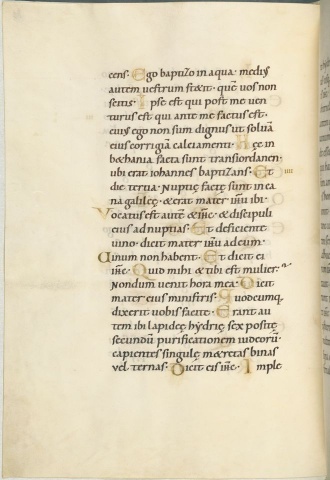 cens. Ego baptizo in aqua. mediꝰ
autem uestrum stetit. quē uos non
scitis. Ipse est qui post me uen
turus est qui ante me factus est.
cuius ego non sum dignus ut soluā
eius corrigiā calciamenti. Hęc in
bethania facta sunt transiordanen.
ubi erat iohannes baptizans. Et
die tertia. Nuptię factę sunt in ca
na galileę. & erat mater ihu ibi.
Vocatus est autē & ihc. & discipuli
eius ad nuptias. Et deficiente
uino. dicit mater ihu ad eum.
Uinum non habent. Et dicit ei
ihc. Quid mihi & tibi est mulier.
Nondum uenit hora mea. Dicit
mater eius ministris. Quodcumq.
dixerit uobis facite. Erant au
tem ibi lapideę hydrię sex positę
secundum purificationem iudeorū.
capientes singulę metretas binas
uel ternas. Dicit eis ihc. Imple